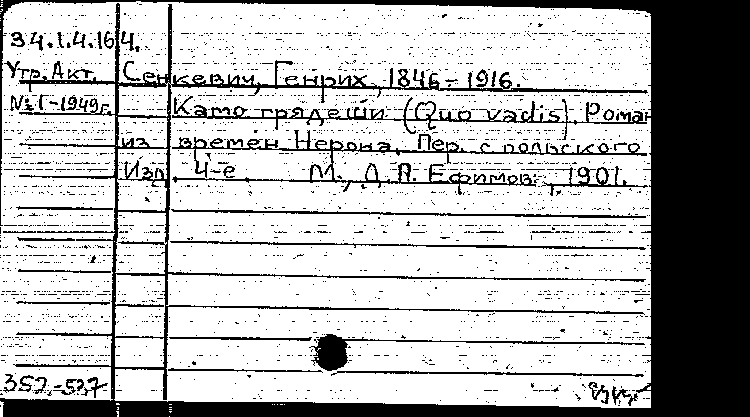 34.1.4.164.
Утр. Акт. Сенкевич, Генрих, 1846-1916.
№1-1949г. Камо грядеши (Quo vadis). Роман
из времен Нерона. Пер. с польского
Изд. 4-е. М., Д.П. Ефимов, 1901.
352-537